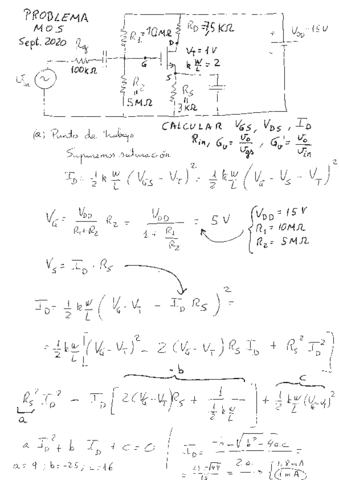 PROBLEMA
MOS
Sept. 2020
R1 = 10MΩ
RD = 7,5 KΩ
VDD = 15V
VT = 1V
k W/L = 2
Rg
100KΩ
G
D
S
R2 = 5MΩ
RS = 3KΩ
CALCULAR VGS, VDS, ID
Rin, Gv = vo/vgs, Gv' = vo/vin
(a) Punto de trabajo
Supuremos saturación
ID = 1/2 k W/L (VGS - VT)² = 1/2 k W/L (VG - VS - VT)²
VG = VDD/(R1+R2) R2 = VDD/(1 + R1/R2) = 5V
VDD = 15V
R1 = 10MΩ
R2 = 5MΩ
VS = ID · RS
ID = 1/2 k W/L (VG - VT - ID RS)² =
= 1/2 k W/L [(VG - VT)² - 2 (VG - VT) RS ID + RS² ID²]
-b
c
RS² ID² - ID [2(VG - VT)RS + 1/(1/2 k W/L)] + 1/2 k W/L (VG - VT)²
a
a ID² + b ID + c = 0
a = 9 ; b = -25 ; c = 16